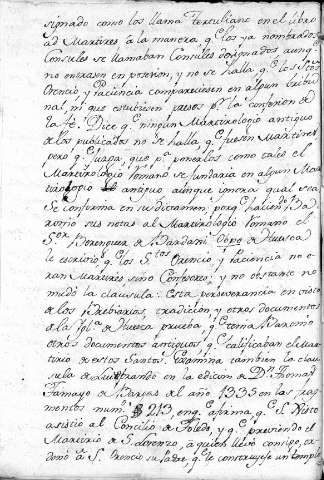 signado como los llama Tertuliano en el libro
ad Martires a la manera q.e los ya nombrados
Consules se llamaban Consules designados aunq.e
no entrasen en posesion, y no se halla q.e los S.tos
Orencio y Paciencia compareciesen en algun tribu
nal, ni que estubiesen presos por la confesion de
la fe. Dice q.e ningun Martirologio antiguo
de los publicados no se halla q.e fuesen Martires
pero q.e juzga, que p.a ponerlos como tales el
Martirologio Romano se fundaria en algun Mar
tirologio antiguo aunque ignora qual sea.
Se confirma en su dictamen, porq.e haviendo Ba
ronio sus notas al Martirologio Romano el
S.or Berenguer de Bardaxi, Obpo de Huesca
le escrivio q.e los S.tos Orencio y Paciencia no e
ran Martires, sino Confesores; y no obstante no
mudó la clausula: Esta perseverancia en vista
de los Breviarios, tradicion y otros documentos
de la Igl.a de Huesca prueba, q.e tenia Baronio
otros documentos antiguos, q.e calificaban el Mar
tirio de estos Santos. Examina tambien la clau
sula de Luitprando en la edicion de D.n Thomas
Tamayo de Bargas del año 1635 en los frag
mentos num. 213, en q.e afirma q.e S. Sixto
asistio al Concilio de Toledo, y q.e previendo el
Martirio de S. Lorenzo, a quien llevó consigo, or
denó a S. Orencio su Padre q.e le construyese un templo